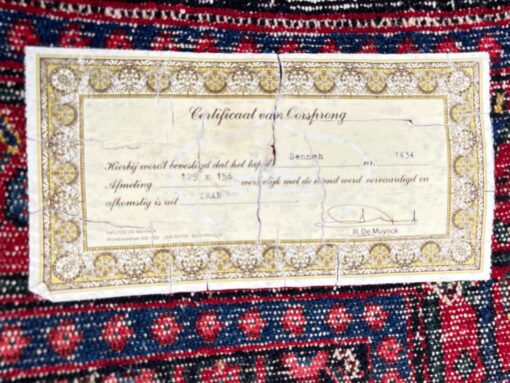 Certificaat van Oorsprong
Hierbij wordt bevestigd dat het tapijt Senneh nr. 1434
Afmeling 129 x 156 werkelijk met de hand werd vervaardigd en
afkomstig is uit IRAN
R. De Muynck
TAPIJTEN DE MUYNCK